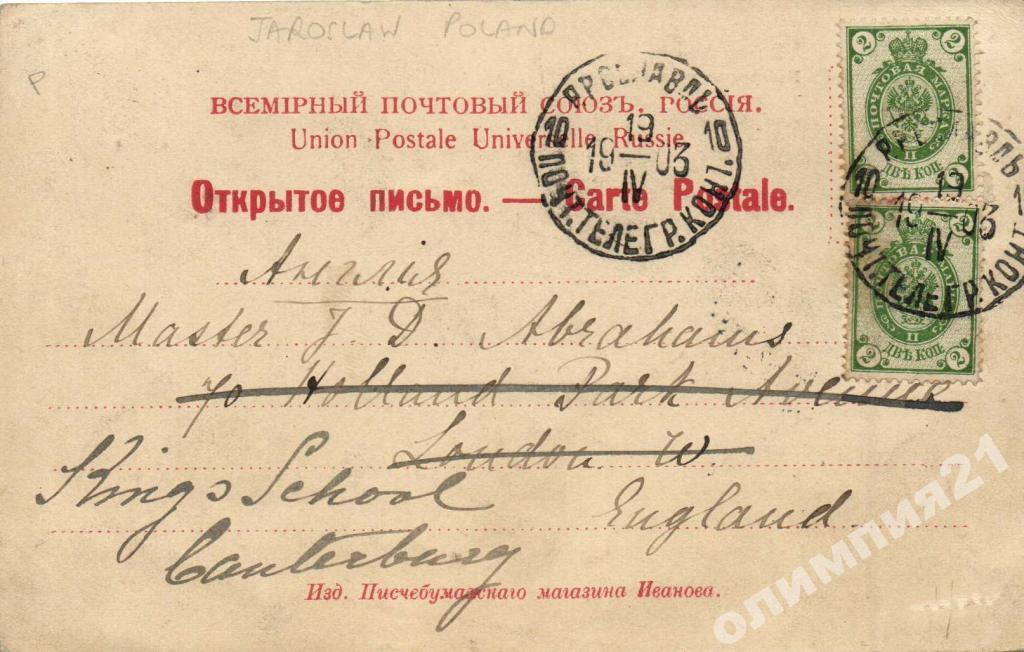 JAROSLAW POLAND
P
ВСЕМІРНЫЙ ПОЧТОВЫЙ СОЮЗЪ. РОССІЯ.
Union Postale Universelle Russie.
Открытое письмо. — Carte Postale.
ЯРОСЛАВЛЬ
10 19 10
19—03
IV
ПОЧТ.ТЕЛЕГР.КОНТ.
2 2
ПОЧТОВАЯ МАРКА
II
ДВѢ КОП.
2
ЯРОСЛАВЛЬ
10 19 1
19—03
IV
ПОЧТ.ТЕЛЕГР.КОНТ
2
II
ДВѢ КОП.
2 2
Англія
Master J. D. Abrahams
70 Holland Park Avenue
London W.
Kings School
England
Canterbury
Изд. Писчебумажнаго магазина Иванова.
олимпия21